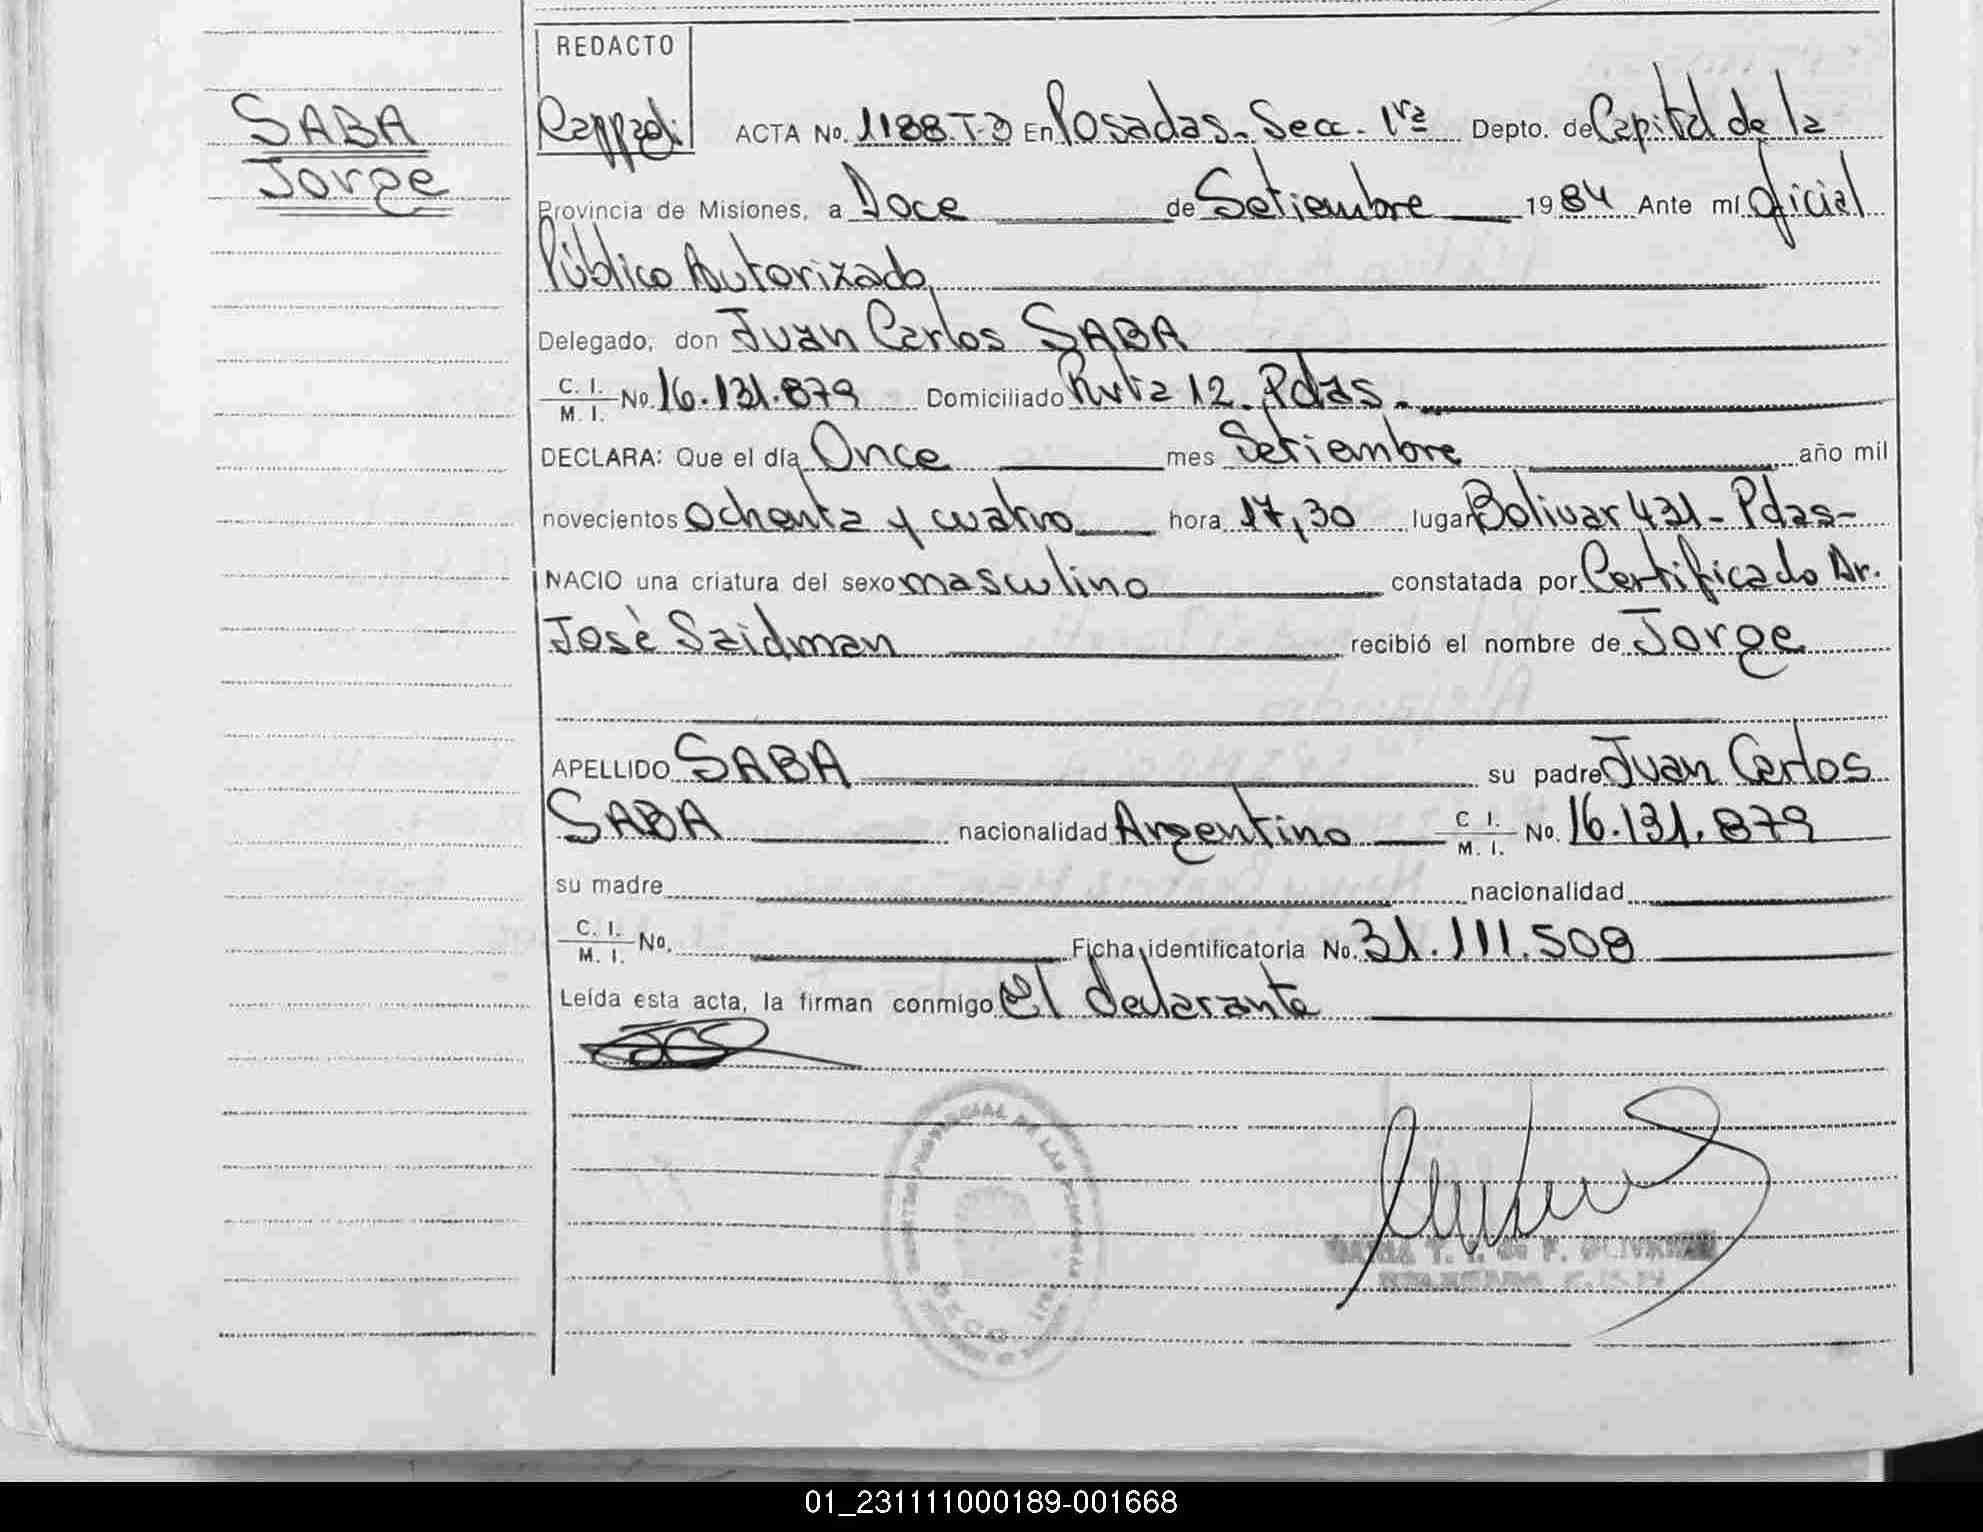 REDACTO
SABA
Jorge
Cappadi ACTA No. 1188.T-3 En Posadas- Secc- 1ra Depto. de Capital de la
Provincia de Misiones, a Doce de Setiembre 1984 Ante mí Oficial
Público Autorizado
Delegado, don Juan Carlos SABA
C. I. M. I. No. 16.131.879 Domiciliado Ruta 12- Pdas.-
DECLARA: Que el día Once mes Setiembre año mil
novecientos Ochenta y cuatro hora 17,30 lugar Bolivar 431- Pdas-
NACIO una criatura del sexo masculino constatada por Certificado Dr.
Josè Saidman recibió el nombre de Jorge
APELLIDO SABA su padre Juan Carlos
SABA nacionalidad Argentino C I. M. I. No. 16.131.879
su madre nacionalidad
C. I. M. I. No. Ficha identificatoria No. 31.111.508
Leída esta acta, la firman conmigo El declarante
01_231111000189-001668